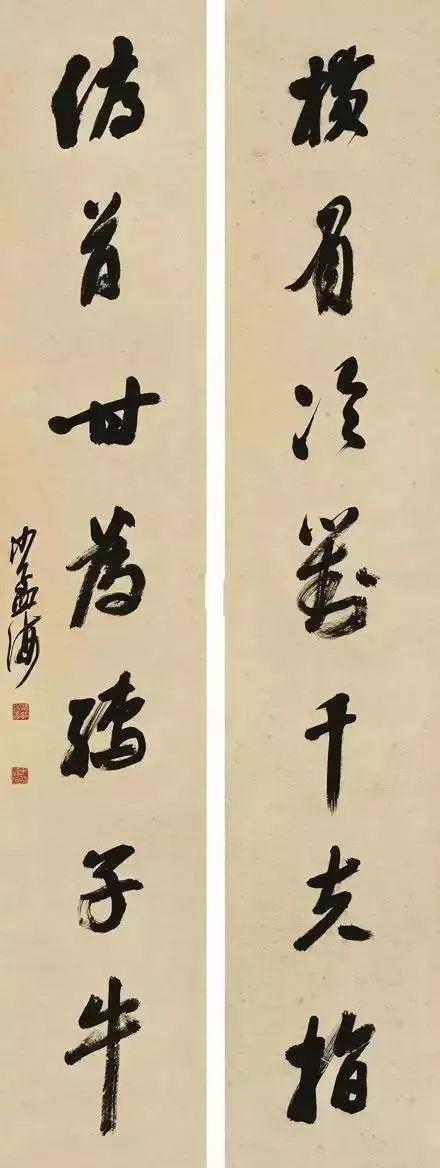 橫眉冷對千夫指
俯首甘為孺子牛
沙孟海